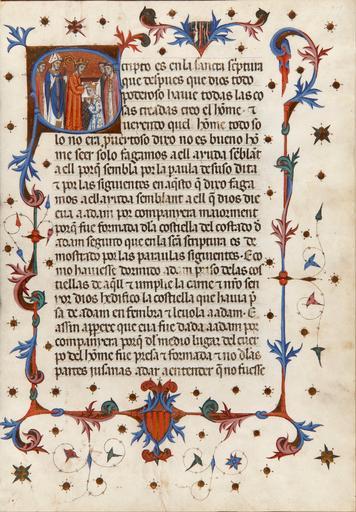 cripto es en la sancta scriptura
que despues que dios todo
poderoso hauie todas las co
sas creadas creo el hōme · ⁊
uierento quel hōme todo so
lo no era puertoso diro no es bueno hō
me seer solo fagamos a ell ayuda sēblāt
a ell porq̄ sembla por la paula desuso dita
⁊ por las siguientes en aq̄sto q̄ diro faga
mos a ell ayuda semblant a ell q̄ dios die
eua a adam por companyera maiorment
porq̄ fue formada dla costiella del costado d̄
adam seguito que en la scā scriptura es de
mostrado por las paraulas siguentes · E co
mo hauiesse dormido adam priso de las cos
tiellas de aq̄ll ⁊ umplie la carne ⁊ nr̄o sen
yor dios hedifico la costiella que hauia p̄
sa de adam en fembra ⁊ leuola a adam · E
assin appere que eua fue dada a adam por
companyera porq̄ dl medio lugar del cuer
po del hōme fue presa ⁊ formada ⁊ no dlas
partes jusanas a dar a entender q̄ no fuesse